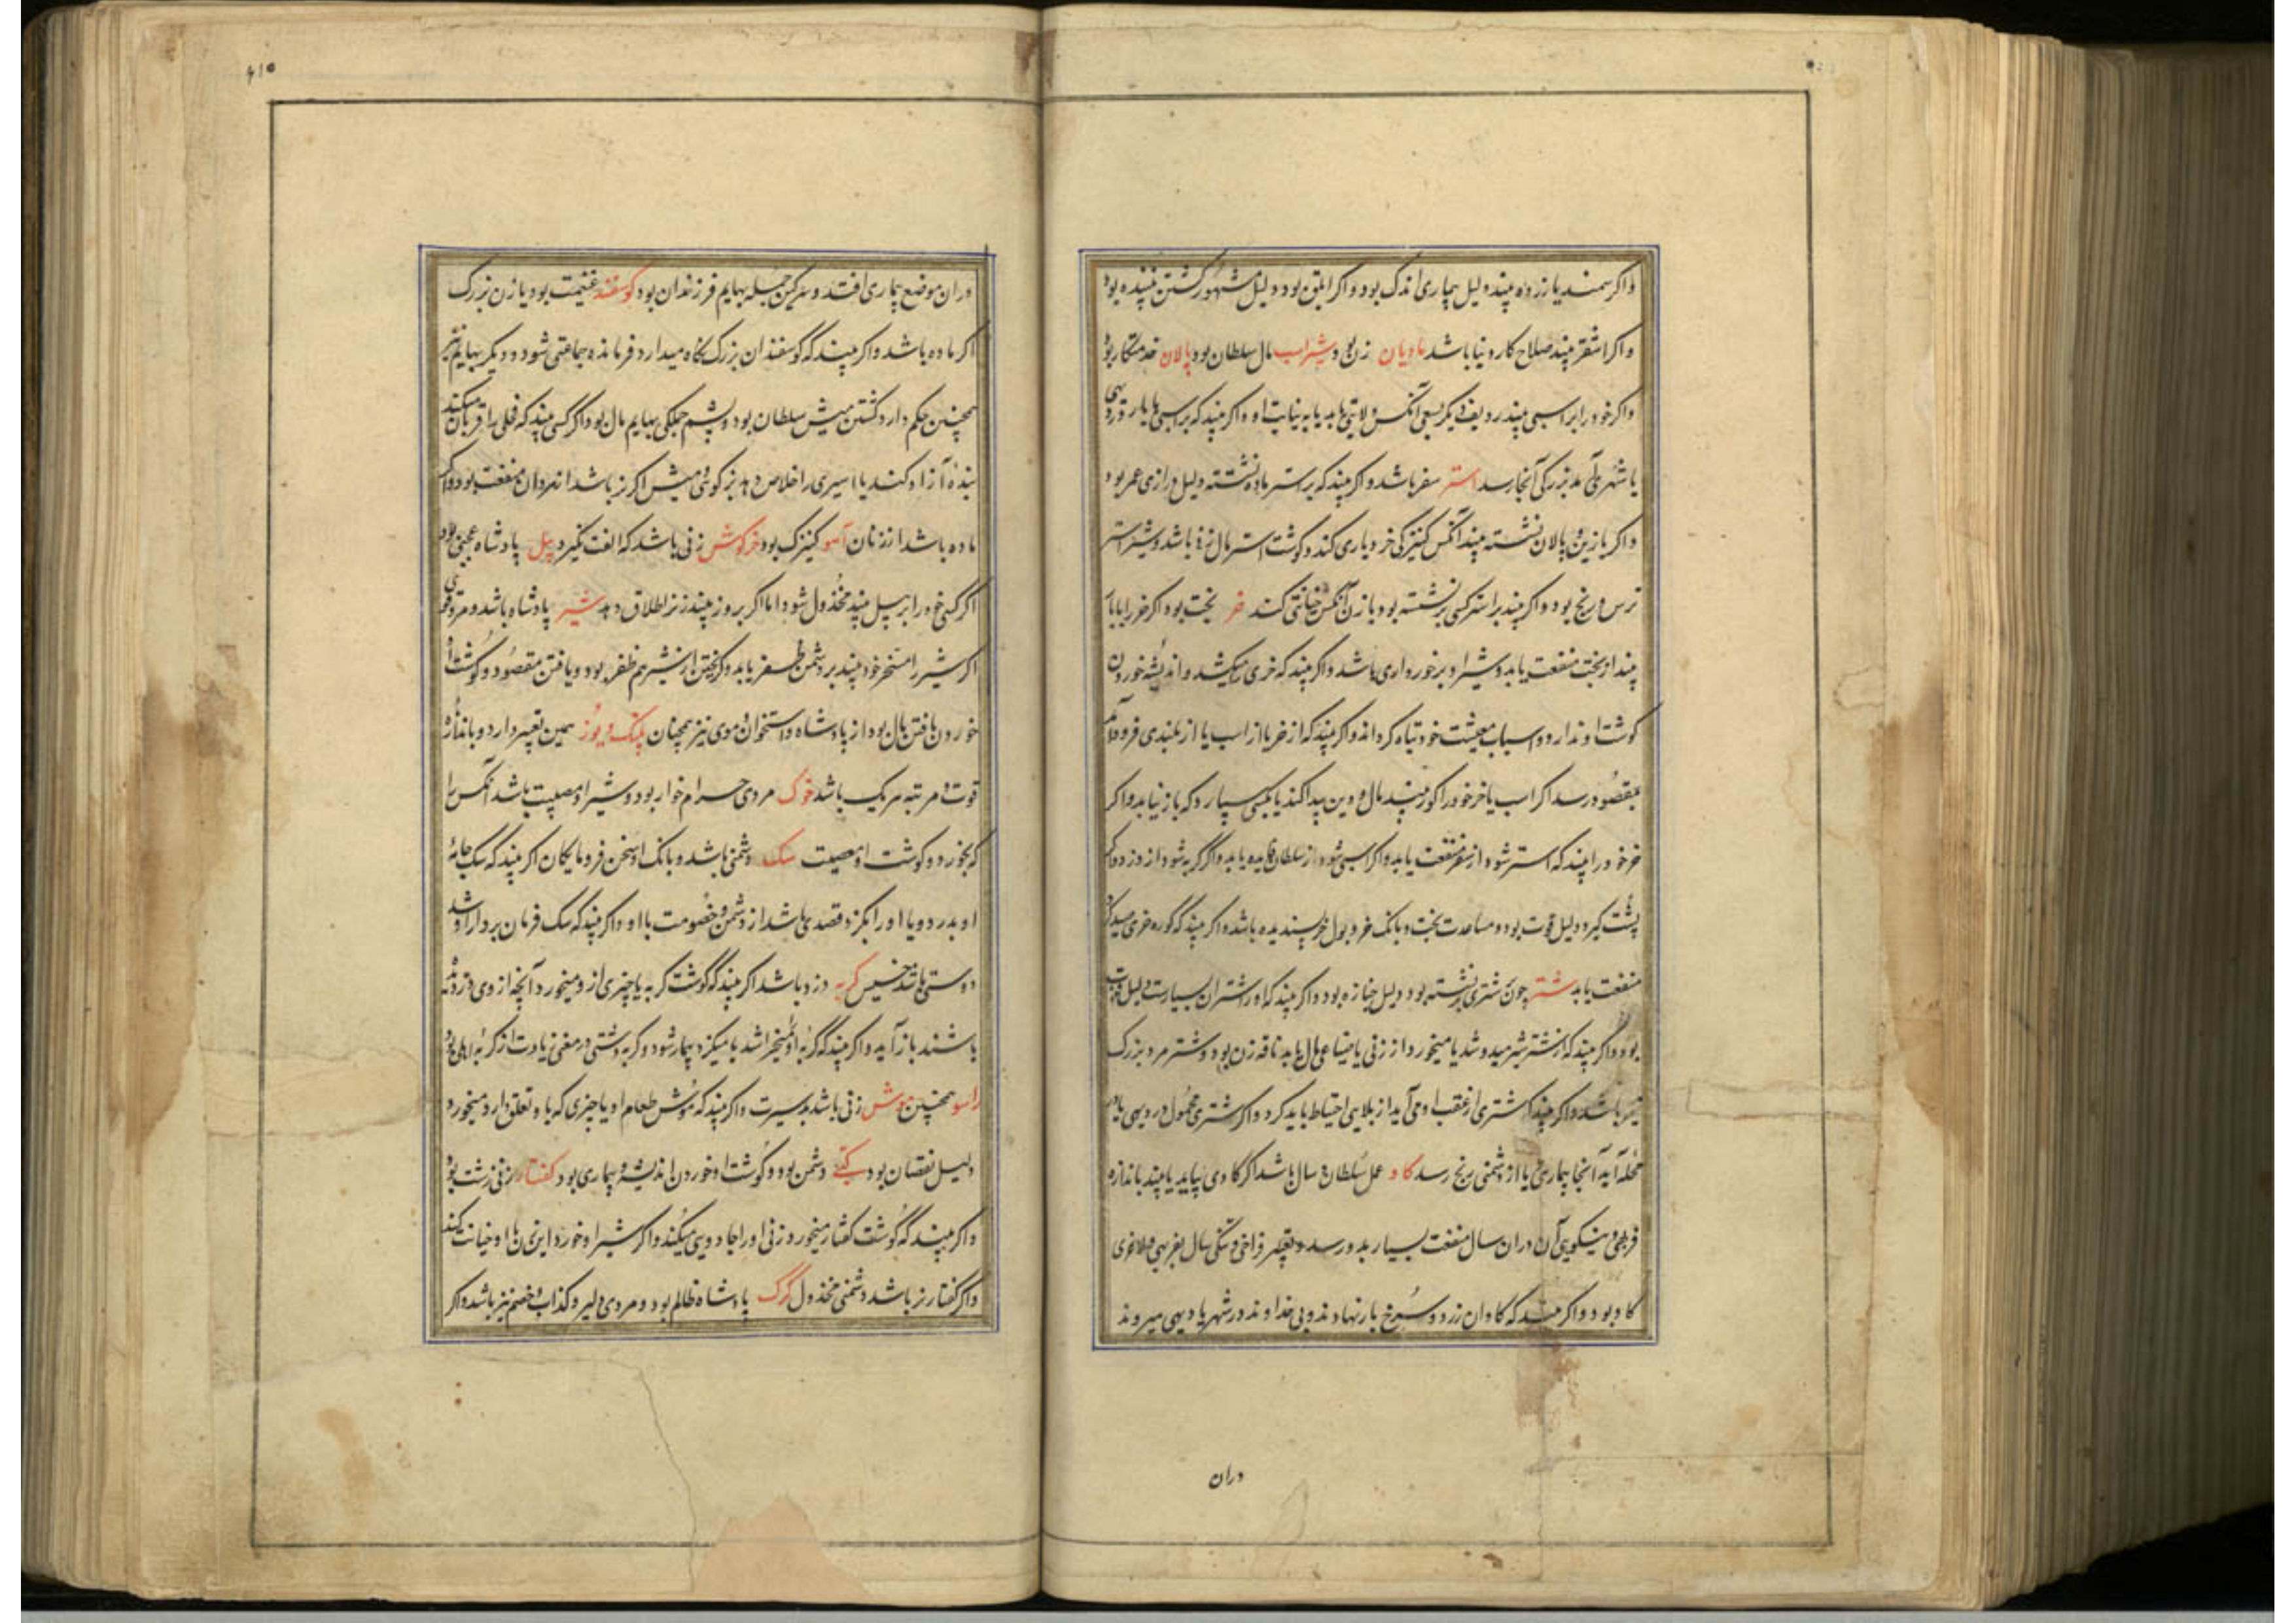 واکر سمند یا زرده بیند دلیل بیماری اندک بود و اکر ابلق بود دلیل مشهور کشتن بیننده بود
واکر اشقر بیند صلاح کار دنیا باشد مادیان زن بود و شیر اسب مال سلطان بود پالان خدمتکار بود
واکر خود را بر اسبی بیند ردیف دیکر بسعی آنکس ولایتی یابد یا به نیابت او و اکر بیند که بر اسبی با بار در دیهی
یا شهر می آمد بزرکی آنجا رسد استر سفر باشد و اکر بیند که بر استر ماده نشسته دلیل درازی عمر بود
واکر با زین و پالان نشسته بیند آنکس کنیزکی خریداری کند و کوشت استر مال باشد و شیر استر
ترس و رنج بود و اکر بیند بر استر کسی بر نشسته بود با زن آنکس خیانتی کند خر بخت بود اکر خر را با بار
بیند از بخت منفعت یابد و شیر او برخورداری باشد و اکر بیند که خری میکشد و اندیشه خوردن
کوشت او ندارد و اسباب معیشت خود تباه کرداند و اکر بیند که از خر یا از اسب یا از بلندی فرود آمد
بمقصود رسد اکر اسب یا خر خود را کور بیند مال دفین پیدا کند یا بکسی سپارد که باز نیابد و اکر
خر خود را بیند که استر شود از سفر منفعت یابد و اکر اسبی شود از سلطان فایده یابد و اکر کربه شود از دزد و اکر
پشت کیرد دلیل قوت بود و مساعدت بخت و بانک خر و بول خر پسندیده باشد و اکر بیند که کوره خری
منفعت یابد شتر چون شتری بر نشسته بود دلیل جنازه بود و اکر بیند که او را شتران بسیارست دلیل قوت
بود و اکر بیند که از شتر شیر میدوشد یا میخورد از زنی یا ضیاعی مال یابد ناقه زن بود و شتر مرد بزرک
نیز باشد و اکر بیند که شتری از عقب او می آید از بلایی احتیاط باید کرد و اکر شتری محمول در دیهی یا در
محله آید آنجا بیماری یا از دشمنی رنج رسد کاو عمل سلطان و سال باشد اکر کاوی بیابد یا بیند باندازه
فربهی و نیکویی آن در ان سال منفعت بسیار بدو رسد و تعبیر فراخی و تنکی سال بفربهی و لاغری
کاو بود و اکر بیند که کاوان زرد و سرخ بار نهاده و بی خداوند در شهر یا دیهی میروند
دران
۴۱۵
دران موضع بیماری افتد و سرکین جمله بهایم فرزندان بود کوسفند غنیمت بود یا زن بزرک
اکر ماده باشد و اکر بیند که کوسفندان بزرک نکاه میدارد فرمانده جماعتی شود و دیکر بهایم نیز
همچنین حکم دارد کشتن میش سلطان بود و پشم جملکی بهایم مال بود و اکر کسی بیند که قربان میکند
بنده آزاد کند یا اسیری را خلاص دهد بز کوهی و میش اکر نر باشد از مردان منفعت بود و اکر
ماده باشد از زنان آهو کنیزک بود خرکوش زنی باشد که الفت نکیرد پیل پادشاه عجمی بود
اکر کسی خود را بر پیل بیند مخذول شود اما اکر بروز بیند زن را طلاق دهد شیر پادشاه باشد و مرد قوی
اکر شیر را مسخر خود بیند بر دشمن ظفر یابد و کریختن از شیر هم ظفر بود و یافتن مقصود و کوشت او
خوردن یافتن مال بود از پادشاه و استخوان و موی نیز همچنان پلنک و یوز همین تعبیر دارد و باندازه
قوت و مرتبه هر یک باشد خوک مردی حرام خوار بود و شیر او مصیبت باشد آنکس را
که بخورد و کوشت او معصیت سک دشمنی باشد و بانک او سخن فرومایکان اکر بیند که سک جامه
او بدرد و یا او را بکزد قصدی باشد از دشمن و خصومت با او و اکر بیند که سک فرمان بردار او شد
دوستی باشد خسیس کربه دزد باشد اکر بیند که کوشت کربه یا چیزی از و میخورد آنچه از وی دزدیده
باشند باز آید و اکر بیند که کربه او را میخراشد یا میکزد بیمار شود و کربه دشتی در معنی زیادت از کربه اهلی بود
راسو همچنین موش زنی باشد بد سیرت و اکر بیند که موش طعام او یا چیزی که باو تعلق دارد میخورد
دلیل نقصان بود کپی دشمن بود و کوشت او خوردن اندیشه و بیماری بود کفتار زنی زشت بود
واکر بیند که کوشت کفتار میخورد زنی او را جادویی میکند و اکر شیر او خورد این زن با او خیانت کند
واکر کفتار نر باشد دشمنی مخذول کرک پادشاه ظالم بود و مردی دلیر و کذاب و خصم نیز باشد و اکر